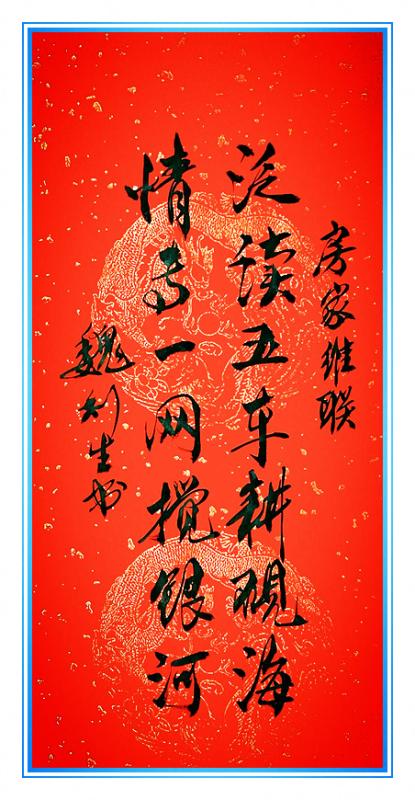 房家维联
泛读五车耕砚海
情专一网搅银河
魏生书